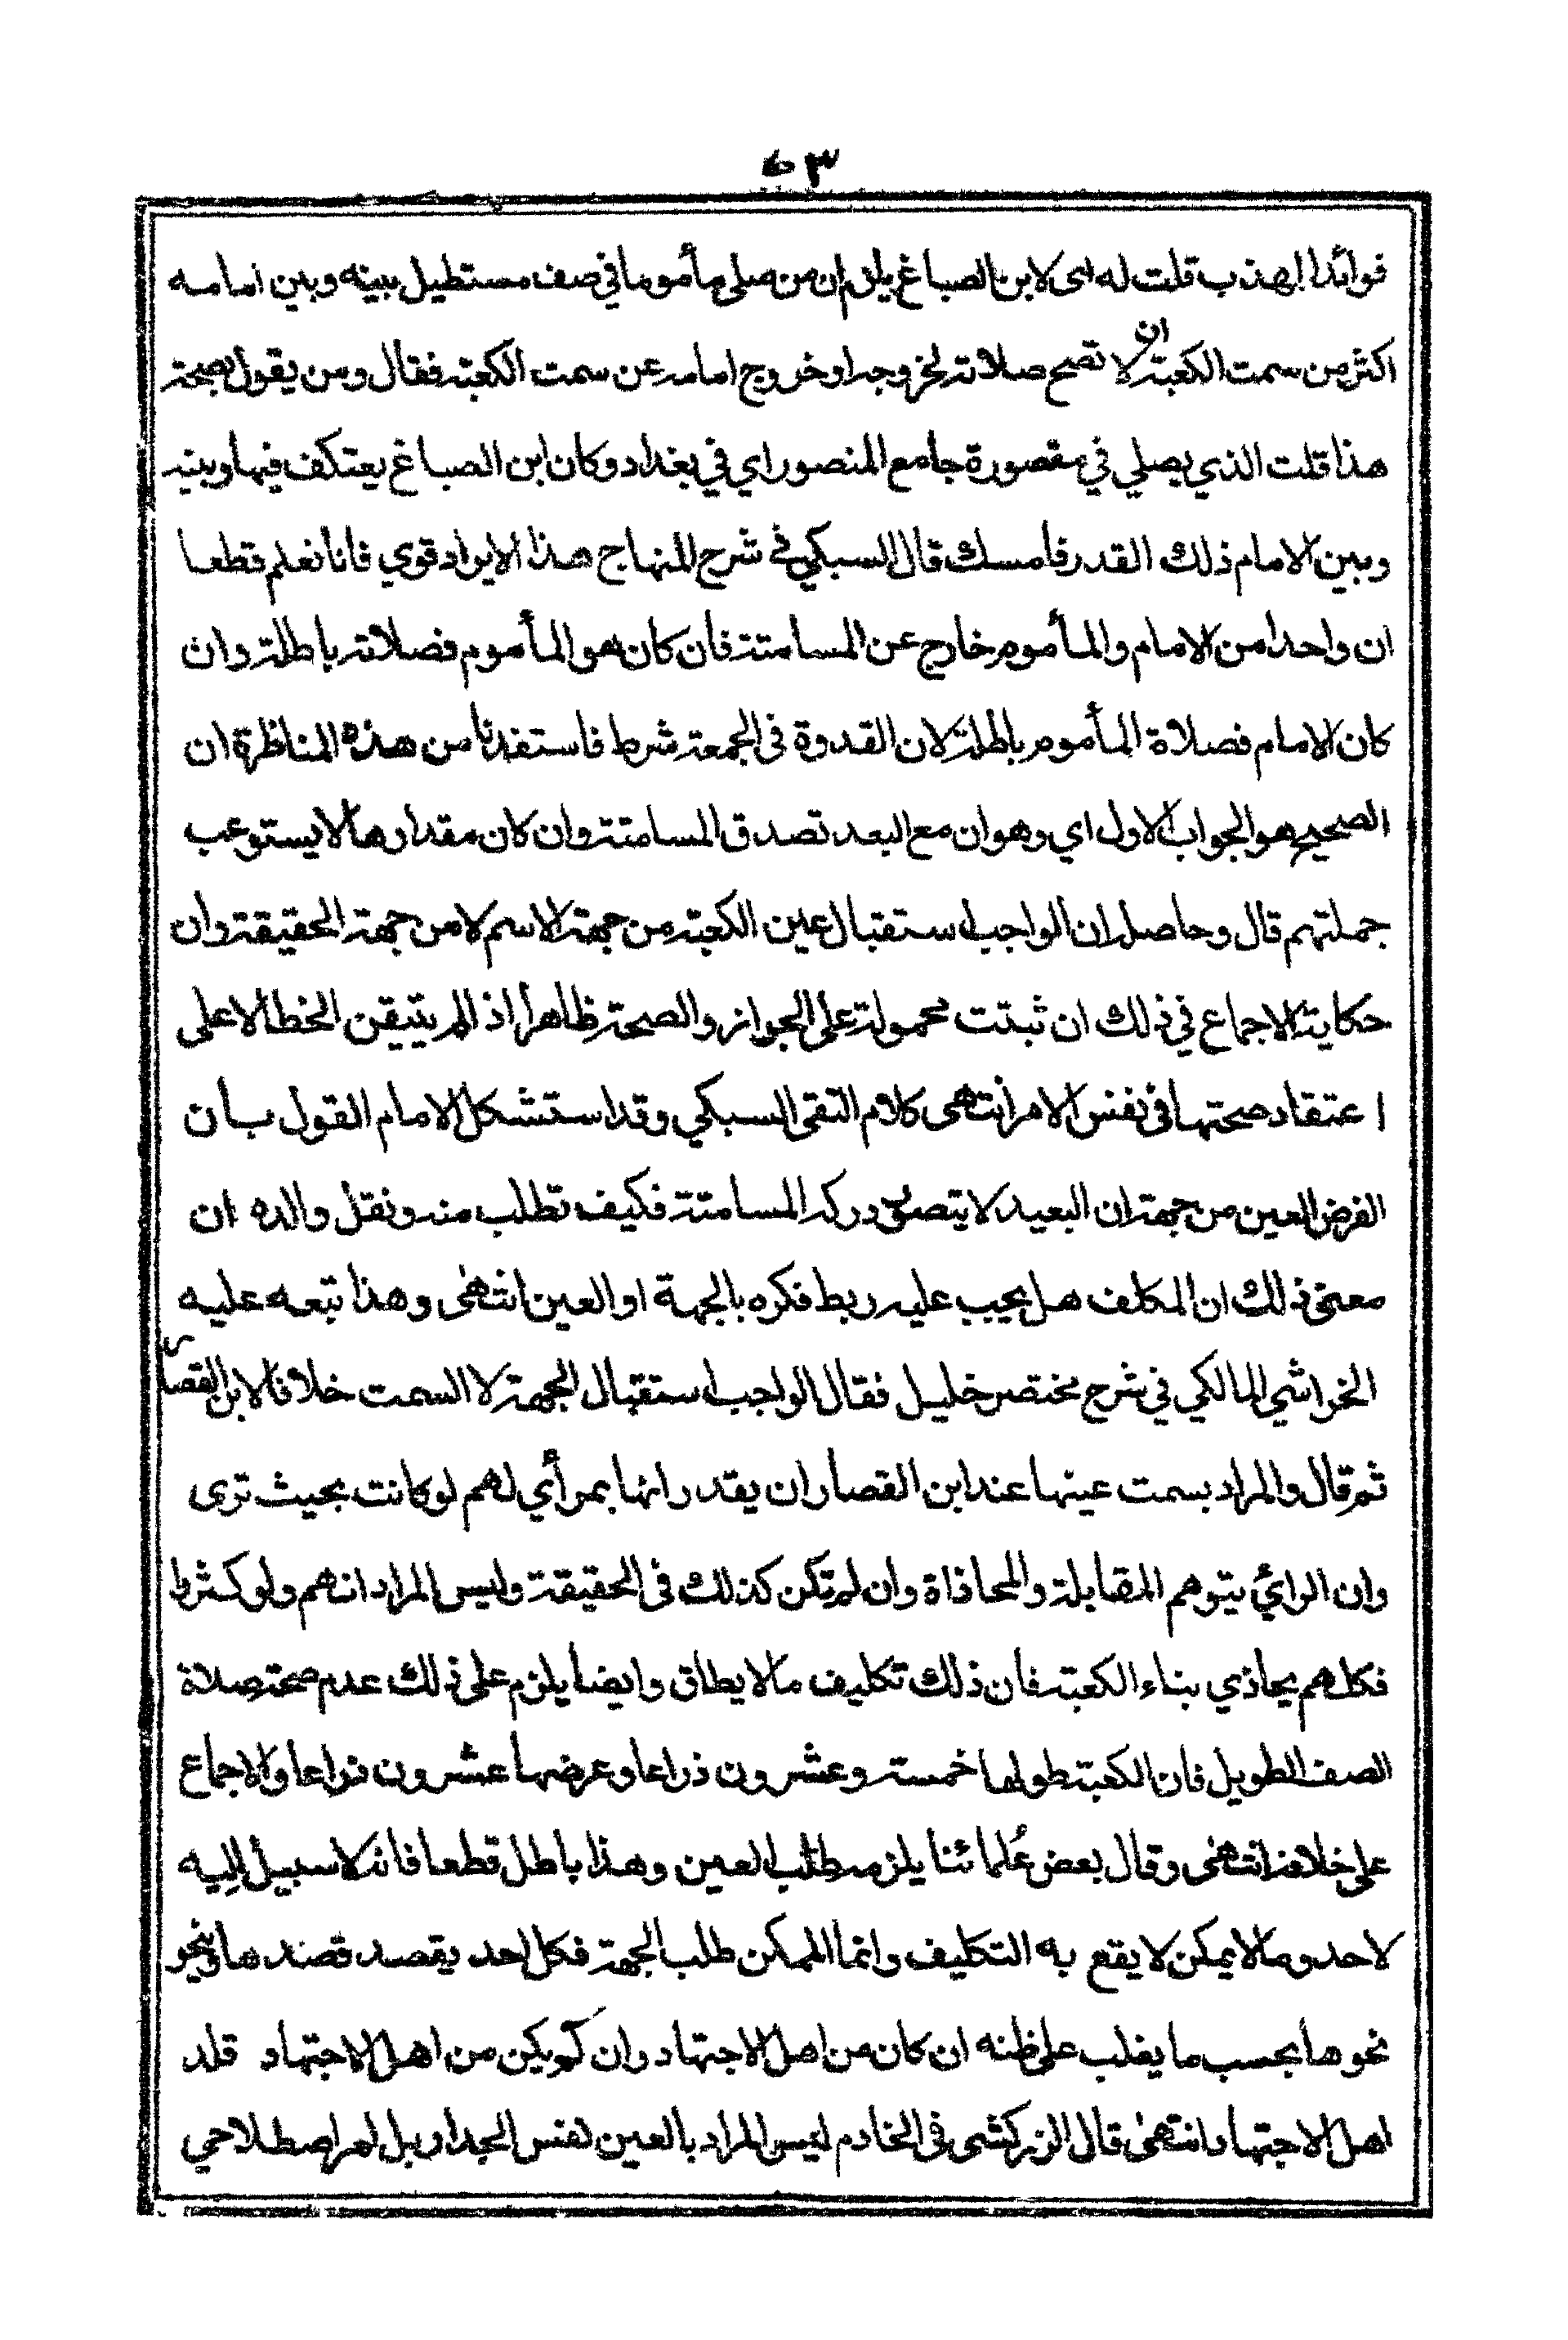 ٦٣
فوائد المهذب قلت له اى لابن الصباغ يلزم ان من صلى مأموما في صف مستطيل بينه وبين امامه
اكثر من سمت الكعبة ان لا تصح صلاته لخروجه او خروج امامه عن سمت الكعبة فقال ومن يقول بصحة
هذا قلت الذي يصلي في مقصورة جامع المنصور اي في بغداد وكان ابن الصباغ يعتكف فيها وبينه
وبين الامام ذلك القدر فامسك قال السبكي في شرح المنهاج هذا الايراد قوي فانا نعلم قطعا
ان واحدا من الامام والمأموم خارج عن المسامتة فان كان هو المأموم فصلاته باطلة وان
كان الامام فصلاة المأموم باطلة لان القدوة في الجمعة شرط فاستفدنا من هذه المناظرة ان
الصحيح هو الجواب الاول اي وهو ان مع البعد تصدق المسامتة وان كان مقدارها لا يستوعب
جملتهم قال وحاصله ان الواجب استقبال عين الكعبة من جهة الاسم لا من جهة الحقيقة وان
حكاية الاجماع في ذلك ان ثبتت محمولة على الجواز والصحة ظاهرا اذ الم يتيقن الخطأ لا على
اعتقاد صحتها في نفس الامر انتهى كلام التقى السبكي وقد استشكل الامام القول بان
الفرض العين من جهة ان البعيد لا يتصور دركه المسامتة فكيف تطلب منه ونقل والده ان
معنى ذلك ان المكلف هل يجب عليه ربط فكره بالجهة او العين انتهى وهذا تبعه عليه
الخراشي المالكي في شرح مختصر خليل فقال الواجب استقبال الجهة لا السمت خلافا لابن القصار
ثم قال والمراد بسمت عينها عند ابن القصار ان يقدر انها بمرأي لهم لو كانت بحيث ترى
وان الرائي يتوهم المقابلة والمحاذاة وان لم تكن كذلك في الحقيقة وليس المراد انهم ولو كثروا
فكلهم يحاذي بناء الكعبة فان ذلك تكليف ما لا يطاق وايضا يلزم على ذلك عدم صحة صلاة
الصف الطويل فان الكعبة طولها خمسة وعشرون ذراعا وعرضها عشرون ذراعا والاجماع
على خلافه انتهى وقال بعض علمائنا يلزمه طلب العين وهذا باطل قطعا فانه لا سبيل اليه
لاحد وما لا يمكن لا يقع به التكليف وانما الممكن طلب الجهة فكل احد يقصد قصدها وينحو
نحوها بحسب ما يغلب على ظنه ان كان من اهل الاجتهاد وان لم يكن من اهل الاجتهاد قلد
اهل الاجتهاد انتهى قال الزركشى في الخادم ليس المراد بالعين نفس الجدار بل امر اصطلاحي